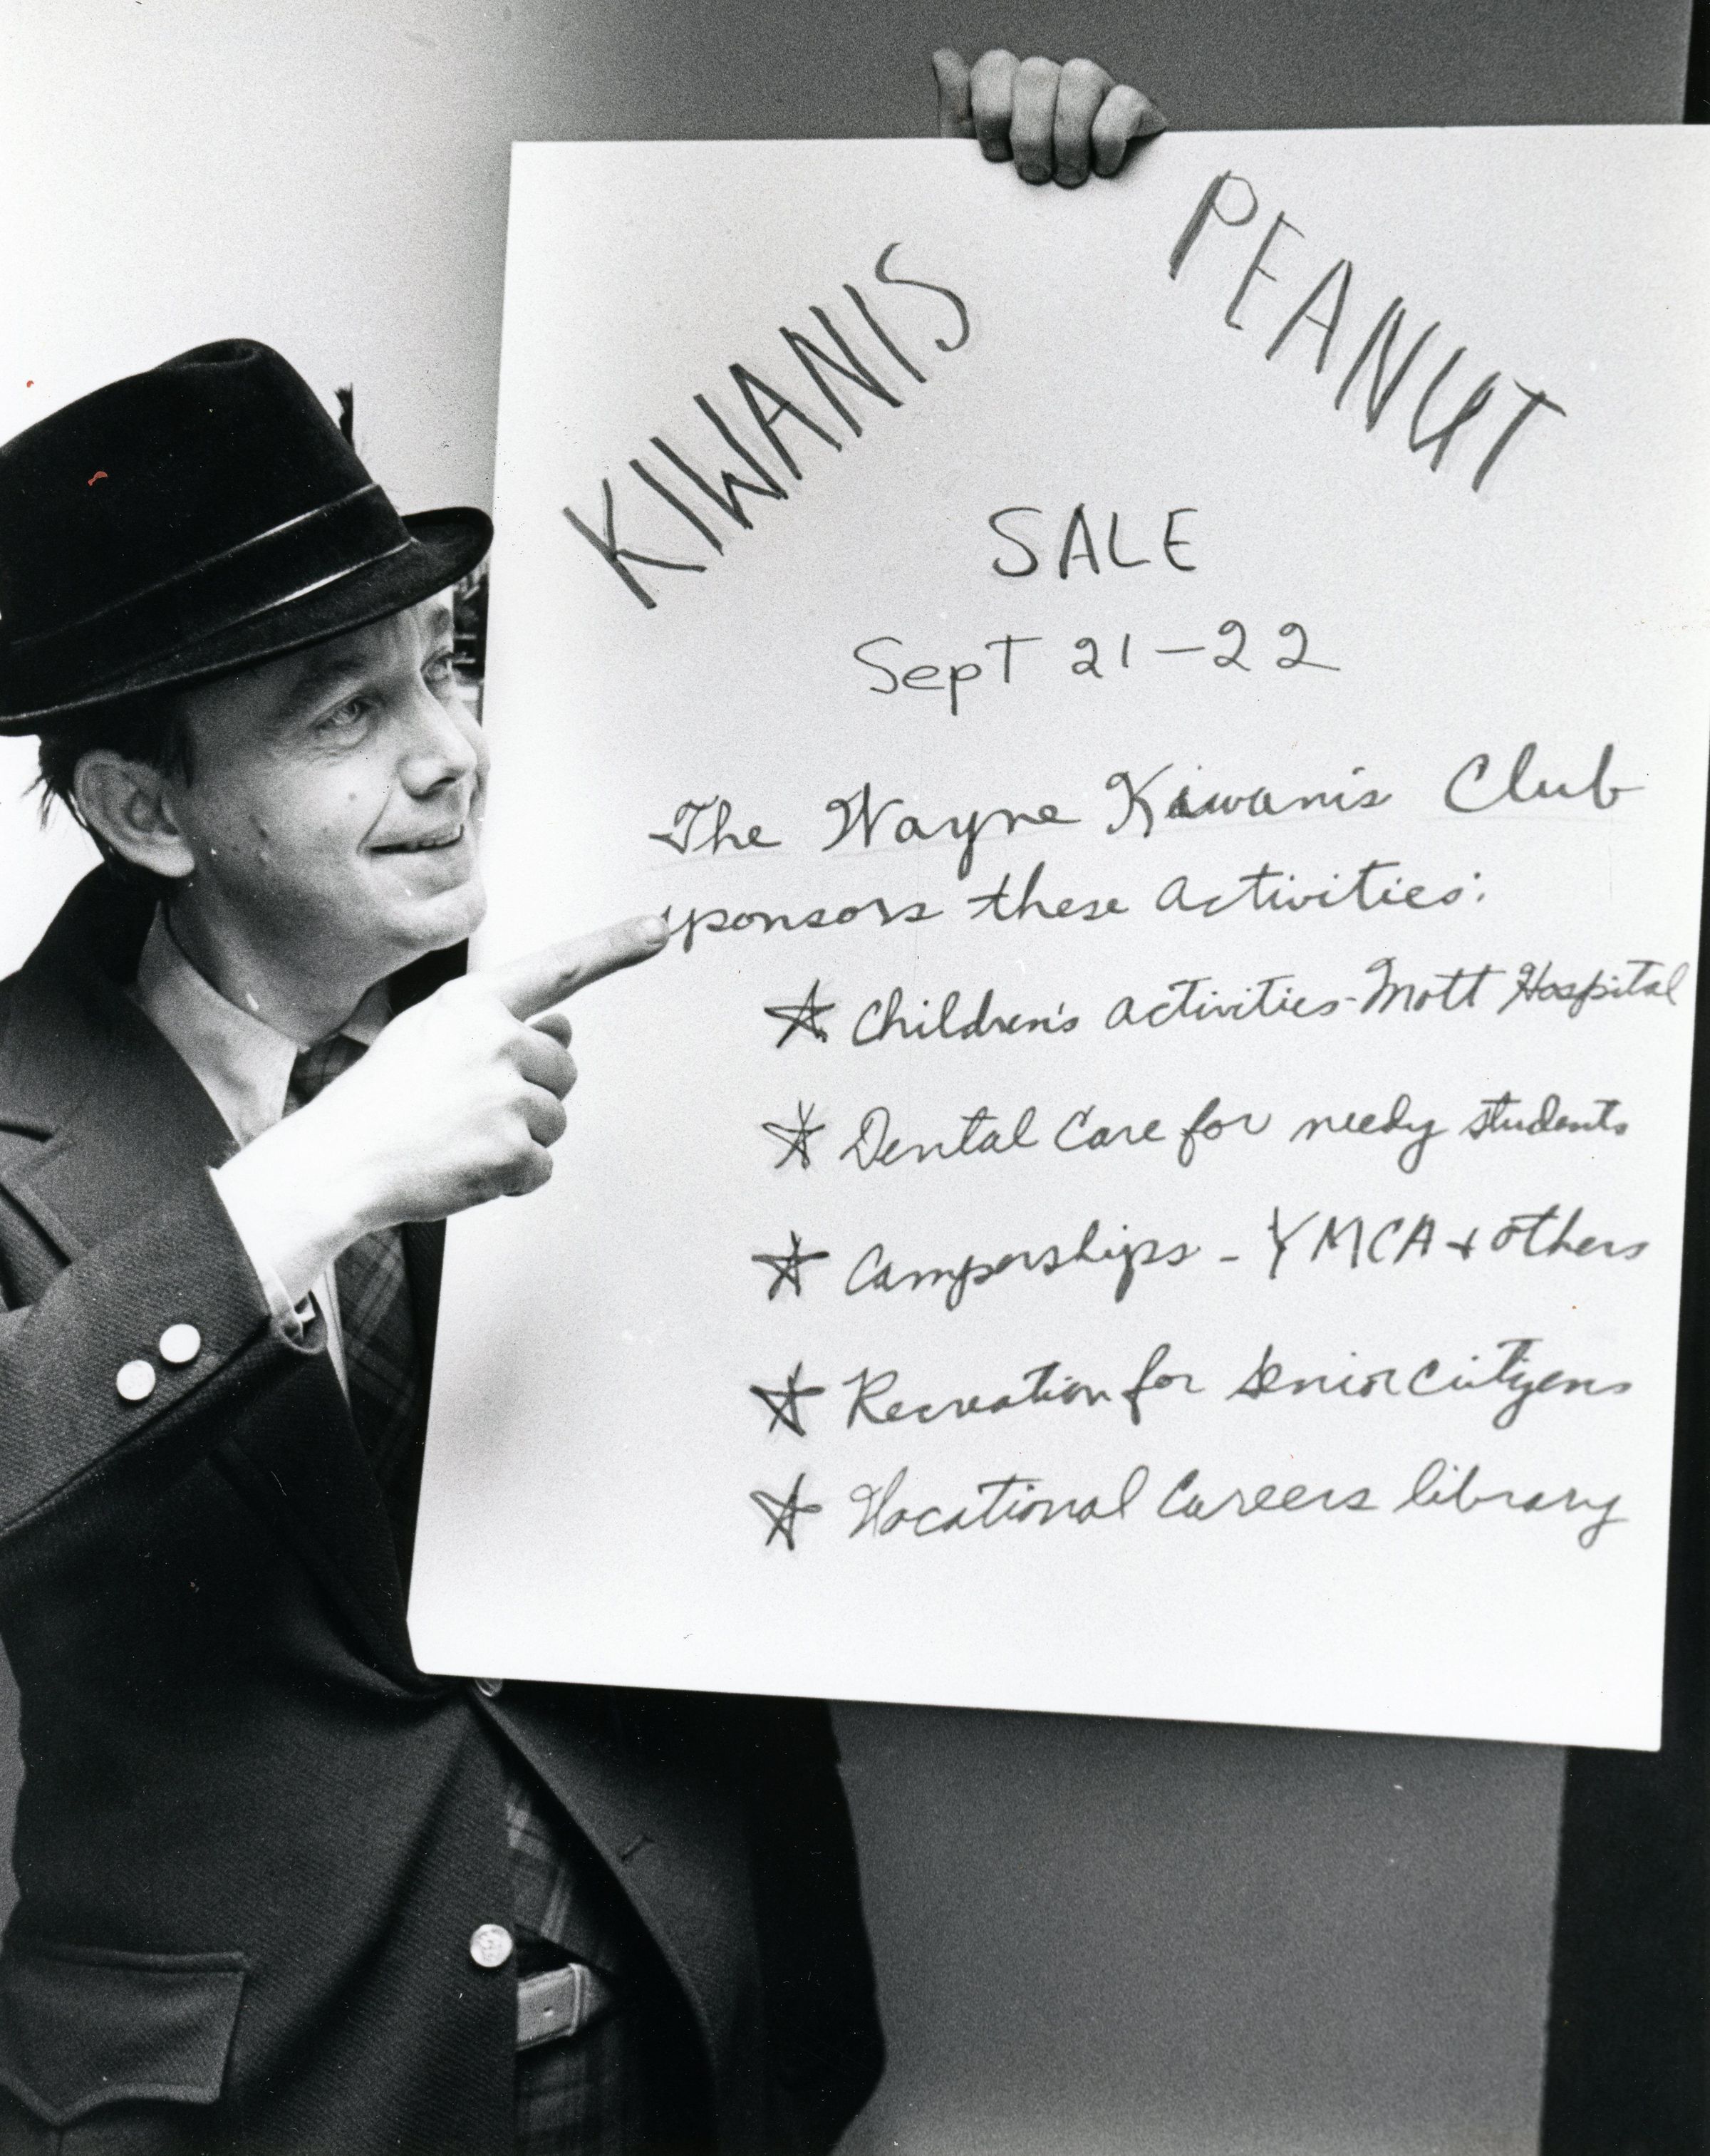 KIWANIS PEANUT
SALE
Sept 21-22
The Wayne Kiwanis Club
sponsors these activities:
☆ Children's activities-Mott Hospital
☆ Dental Care for needy students
☆ Camperships - YMCA + others
☆ Recreation for Senior Citizens
☆ Vocational Careers library